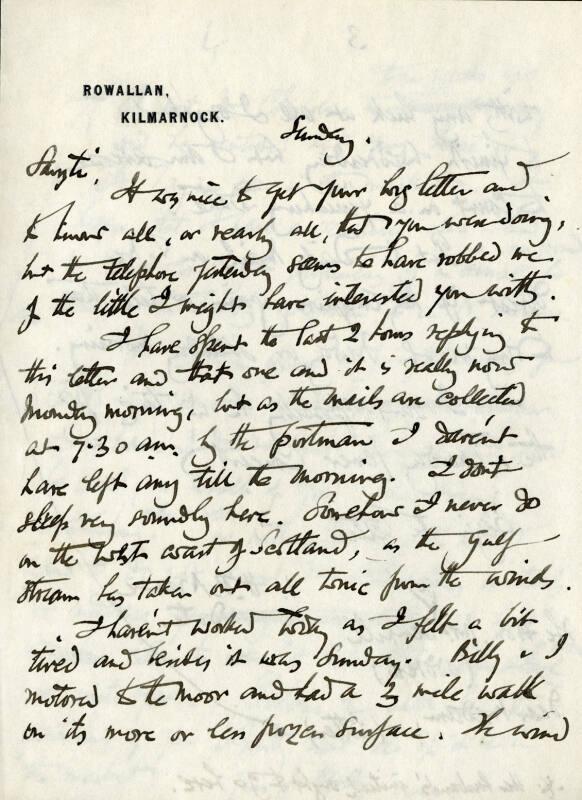 ROWALLAN,
KILMARNOCK.
Sunday.
It was nice to get your long letter and
to know all, or nearly all, that you were doing,
but the telephone yesterday seems to have robbed me
of the little I might have interested you with.
I have spent the last 2 hours replying to
this letter and that one and it is really now
Monday morning, but as the mails are collected
at 7.30 a.m. by the postman I daren't
have left any till the morning. I don't
sleep very soundly here. Somehow I never do
on the West coast of Scotland, as the Gulf
Stream has taken out all tonic from the winds.
I haven't worked today as I felt a bit
tired and besides it was Sunday. Billy & I
motored to the moor and had a 3 mile walk
on its more or less frozen surface. The wind